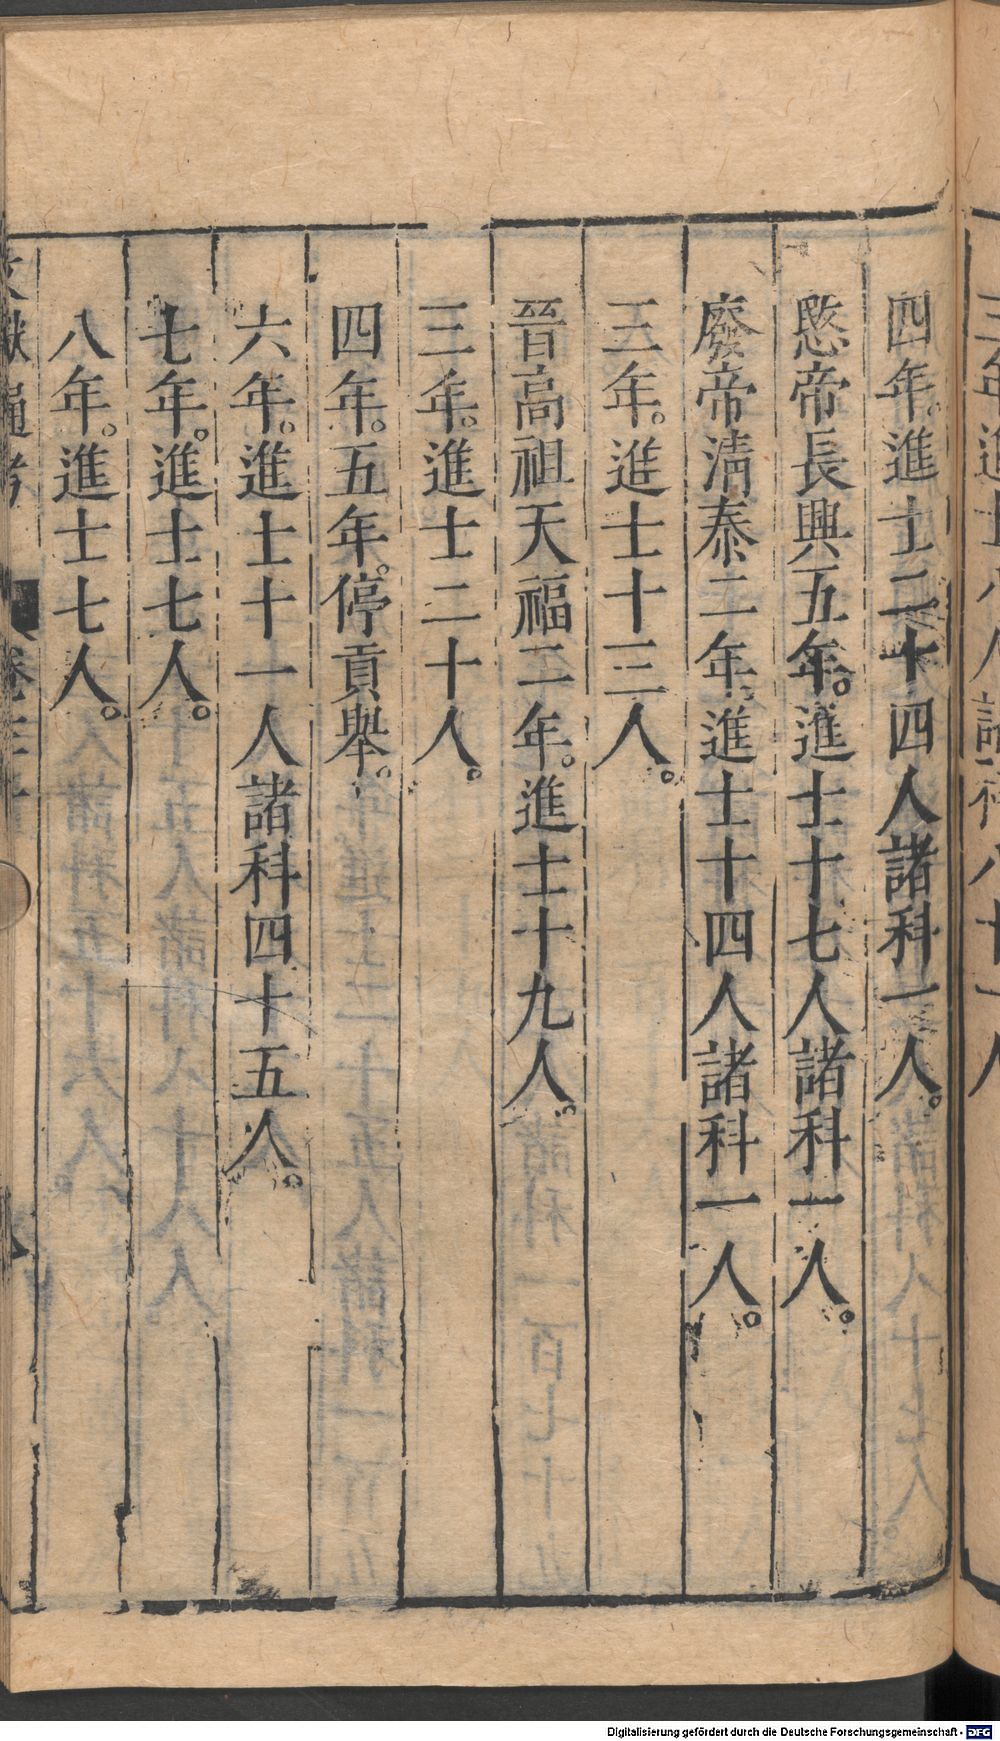 四年。進士二十四人諸科一人。
愍帝長興五年。進士十七人諸科一人。
廢帝清泰二年。進士十四人諸科一人。
三年。進士十三人。
晉高祖天福二年。進士十九人。
三年。進士二十人。
四年。五年。停貢舉。
六年。進士十一人諸科四十五人。
七年。進士七人。
八年。進士七人。
Digitalisierung gefördert durch die Deutsche Forschungsgemeinschaft - DFG